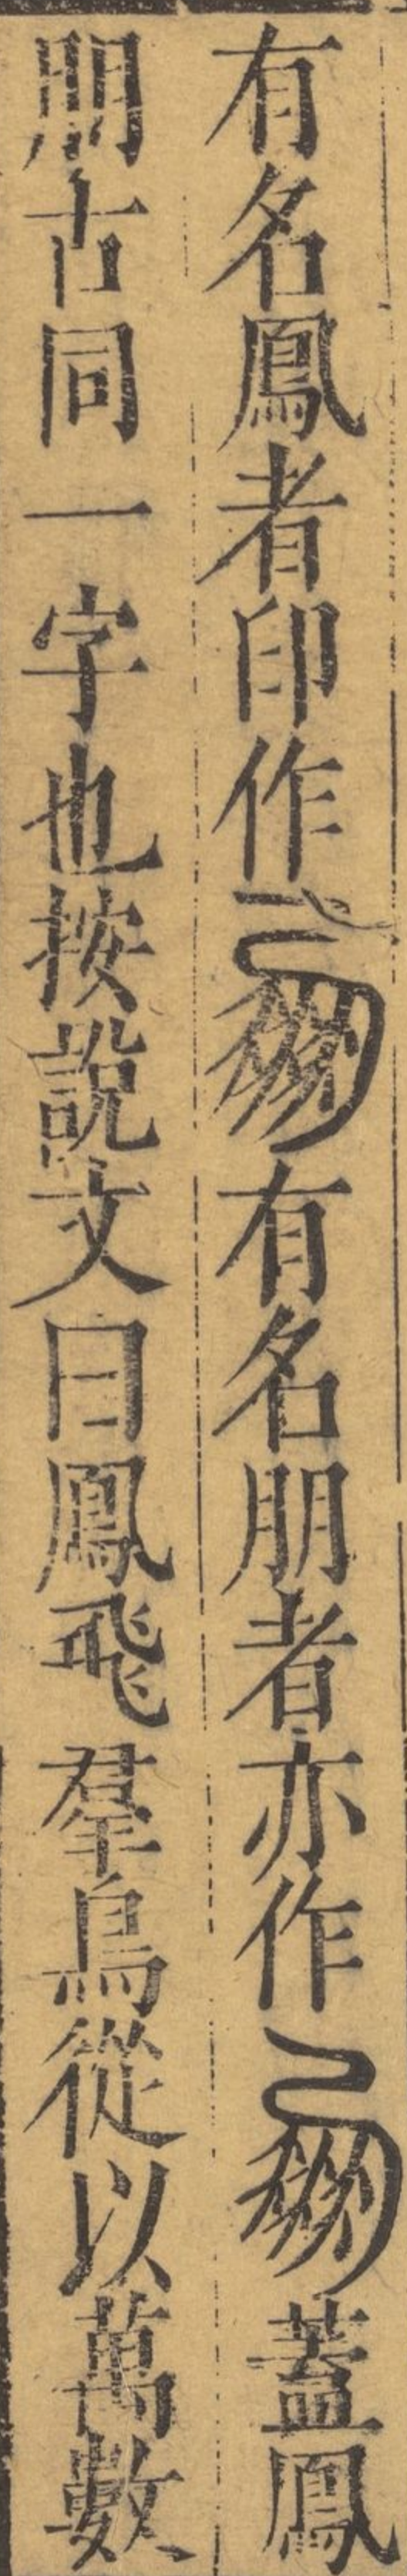 有名鳳者印作有名朋者亦作蓋鳳
朋古同一字也按說文曰鳳飛羣鳥從以萬數